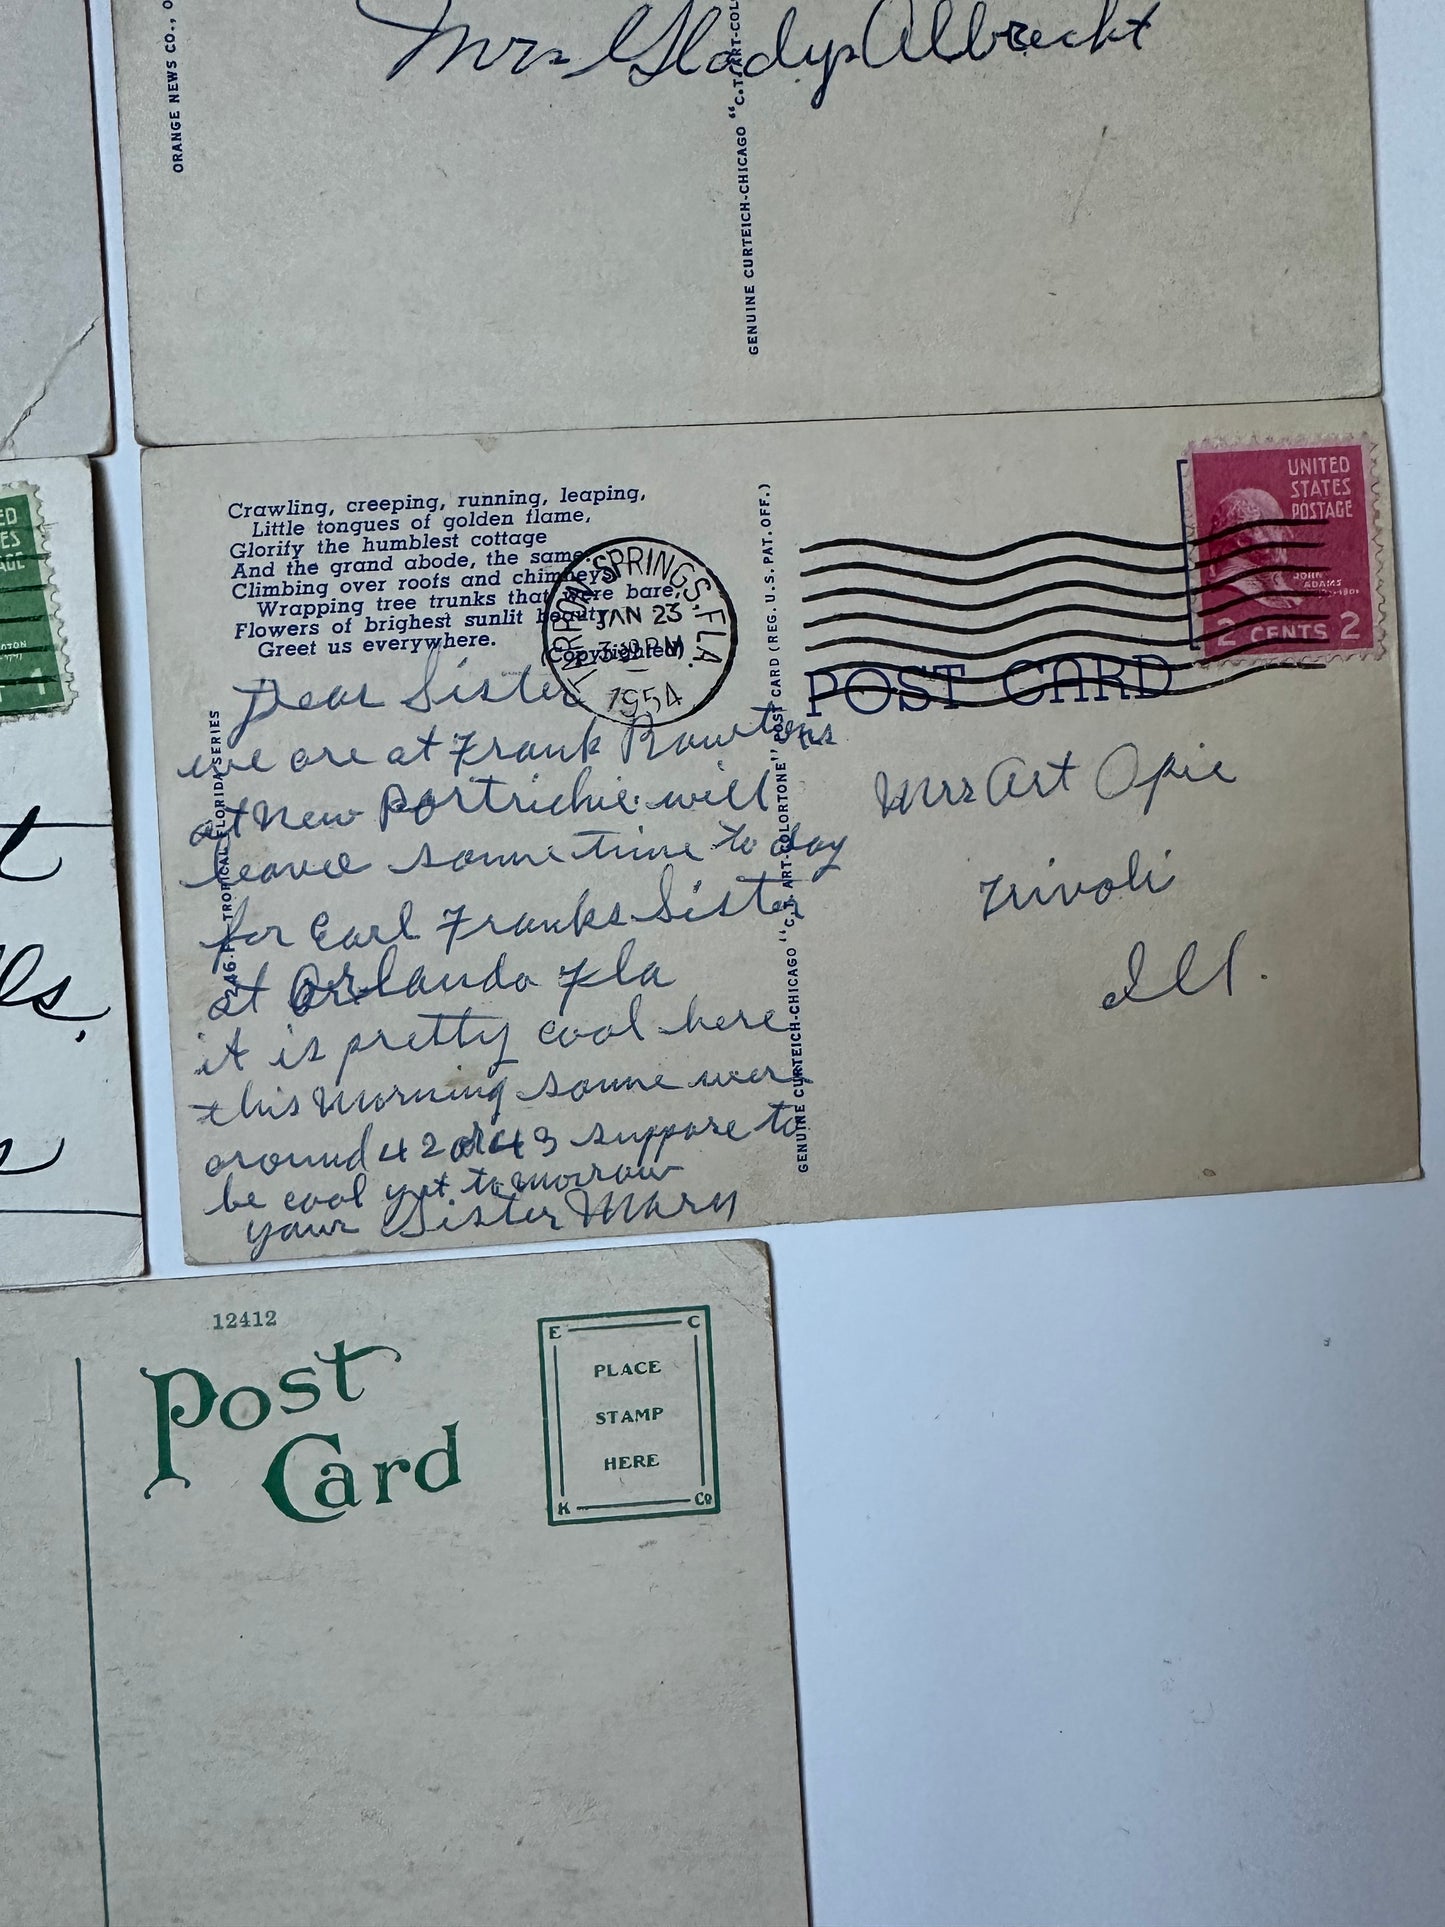 ORANGE NEWS CO., O
Mrs Gladys Albrecht
GENUINE CURTEICH-CHICAGO "C.T. ART-COL
ED
ES
AGE
1
Crawling, creeping, running, leaping,
Little tongues of golden flame,
Glorify the humblest cottage
And the grand abode, the same;
Climbing over roofs and chimneys,
Wrapping tree trunks that were bare,
Flowers of brighest sunlit beauty
Greet us everywhere.
(Copyrighted)
SPRINGS, FLA.
JAN 23
PM
1954
UNITED
STATES
POSTAGE
JOHN
ADAMS
2 CENTS 2
POST CARD
TROPICAL FLORIDA SERIES
GENUINE CURTEICH-CHICAGO "C.T. ART-COLORTONE" POST CARD (REG. U.S. PAT. OFF.)
Dear Sister
we are at Frank Rowtons
at New Portrichie will
leave some time to day
for Earl Franks Sister
at Orlando Fla
it is pretty cool here
this Morning some wer
around 42 or 43 suppose to
be cool yet tomorrow
your Sister Mary
Mrs Art Opie
Trivoli
Ill.
12412
Post
Card
E C
PLACE
STAMP
HERE
K Co